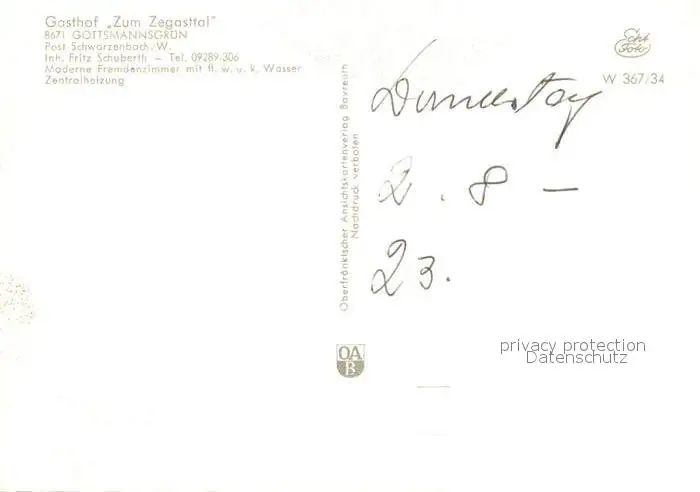 Gasthof „Zum Zegasttal"
8671 GOTTSMANNSGRÜN
Post Schwarzenbach/W.
Inh. Fritz Schuberth – Tel. 09289/306
Moderne Fremdenzimmer mit fl. w. u. k. Wasser
Zentralheizung
Echt
Foto
W 367/34
Oberfränkischer Ansichtskartenverlag Bayreuth
Nachdruck verboten
Donnerstag
2. 8 –
23.
OA
B
privacy protection
Datenschutz